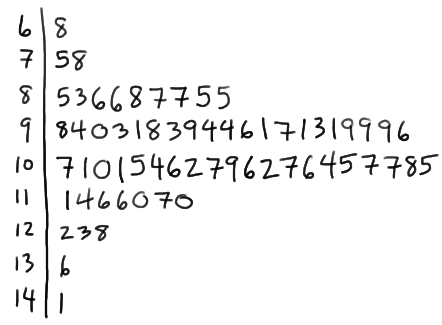 6 | 8
7 | 58
8 | 536687755
9 | 84031839446171319996
10 | 71015462796276457785
11 | 1466070
12 | 238
13 | 6
14 | 1